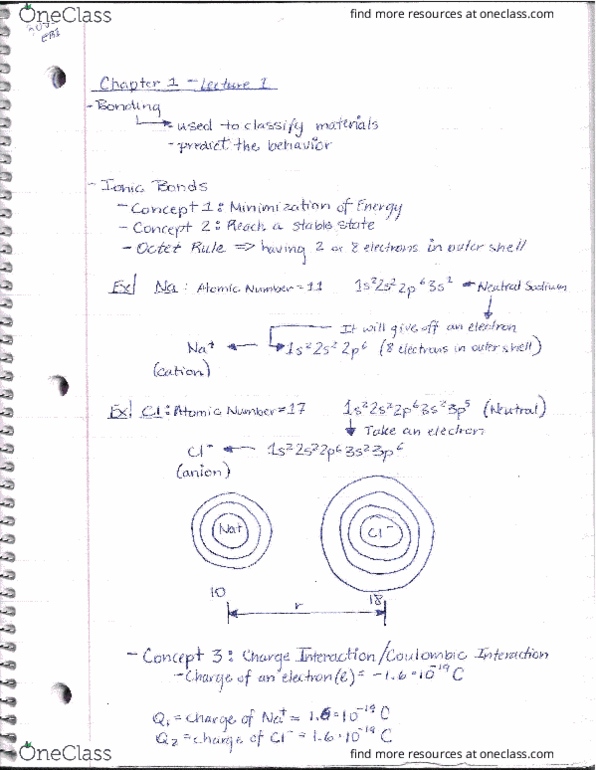 OneClass
find more resources at oneclass.com
Chapter 1 - Lecture 1
- Bonding
→ used to classify materials
- predict the behavior
- Ionic Bonds
- Concept 1: Minimization of Energy
- Concept 2: Reach a stable state
- Octet Rule => having 2 or 8 electrons in outer shell
Ex/ Na: Atomic Number = 11 1s²2s²2p⁶3s¹ ← Neutral Sodium
It will give off an electron
Na⁺ ← 1s²2s²2p⁶ (8 electrons in outer shell)
(cation)
Ex/ Cl: Atomic Number = 17 1s²2s²2p⁶3s²3p⁵ (Neutral)
↓ Take an electron
Cl⁻ ← 1s²2s²2p⁶3s²3p⁶
(anion)
Na⁺ Cl⁻
10 18
r
- Concept 3: Charge Interaction/Coulombic Interaction
- Charge of an electron (e) = -1.6·10⁻¹⁹ C
Q₁ = charge of Na⁺ = 1.6·10⁻¹⁹ C
Q₂ = charge of Cl⁻ = 1.6·10⁻¹⁹ C
OneClass
find more resources at oneclass.com